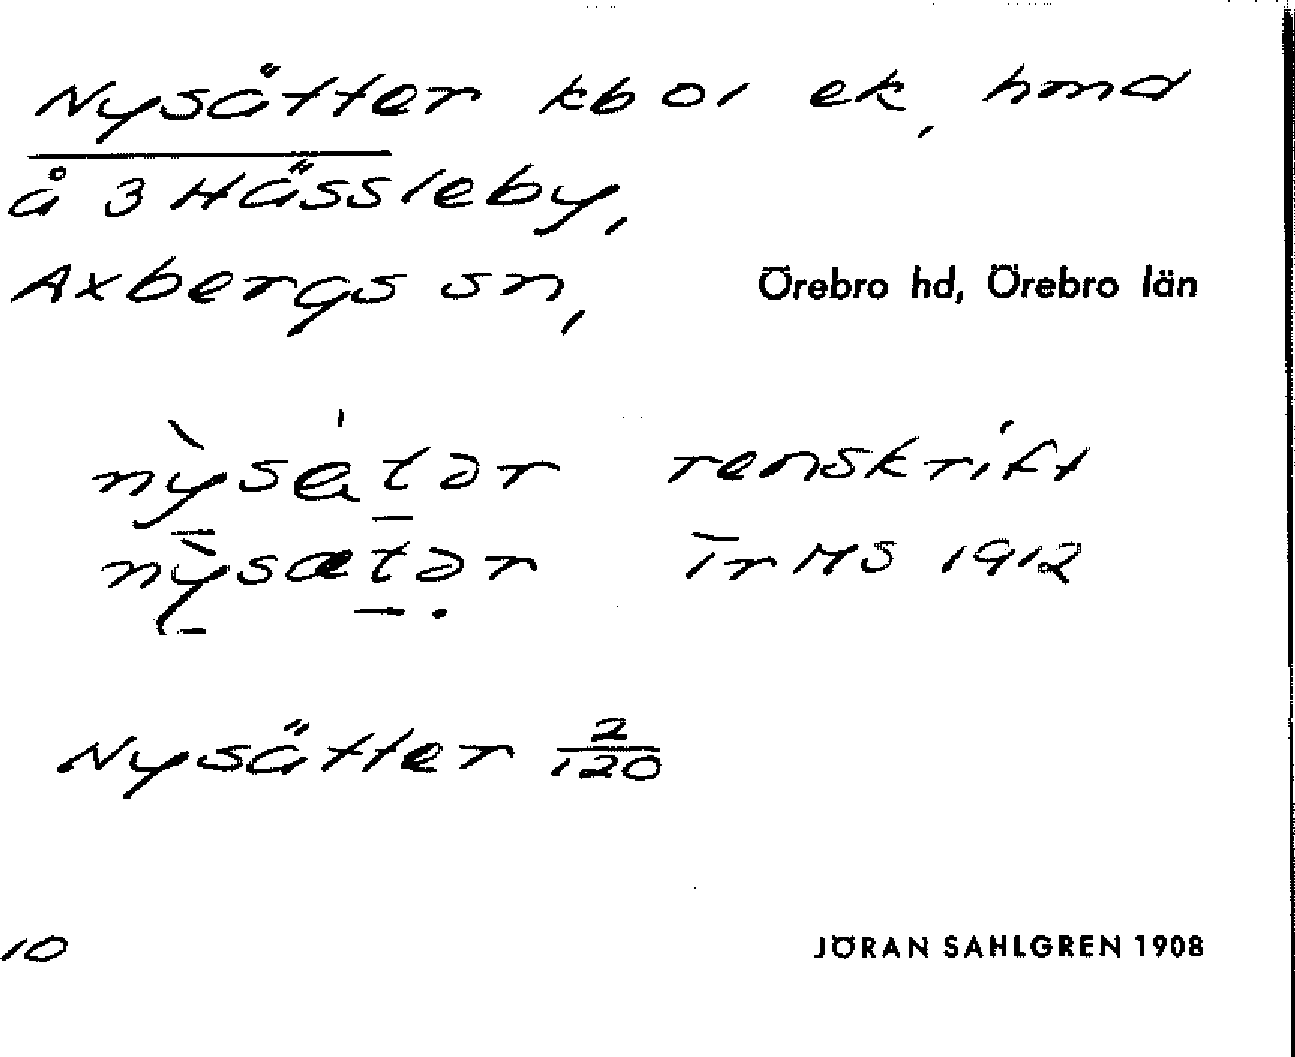 Nysätter kb or ek, hmd
å 3 Hässleby,
Axbergs sn, Örebro hd, Örebro län
nỳsätər renskrift
nỳsætər ĪrMS 1912
Nysätter 2/120
10 JÖRAN SAHLGREN 1908